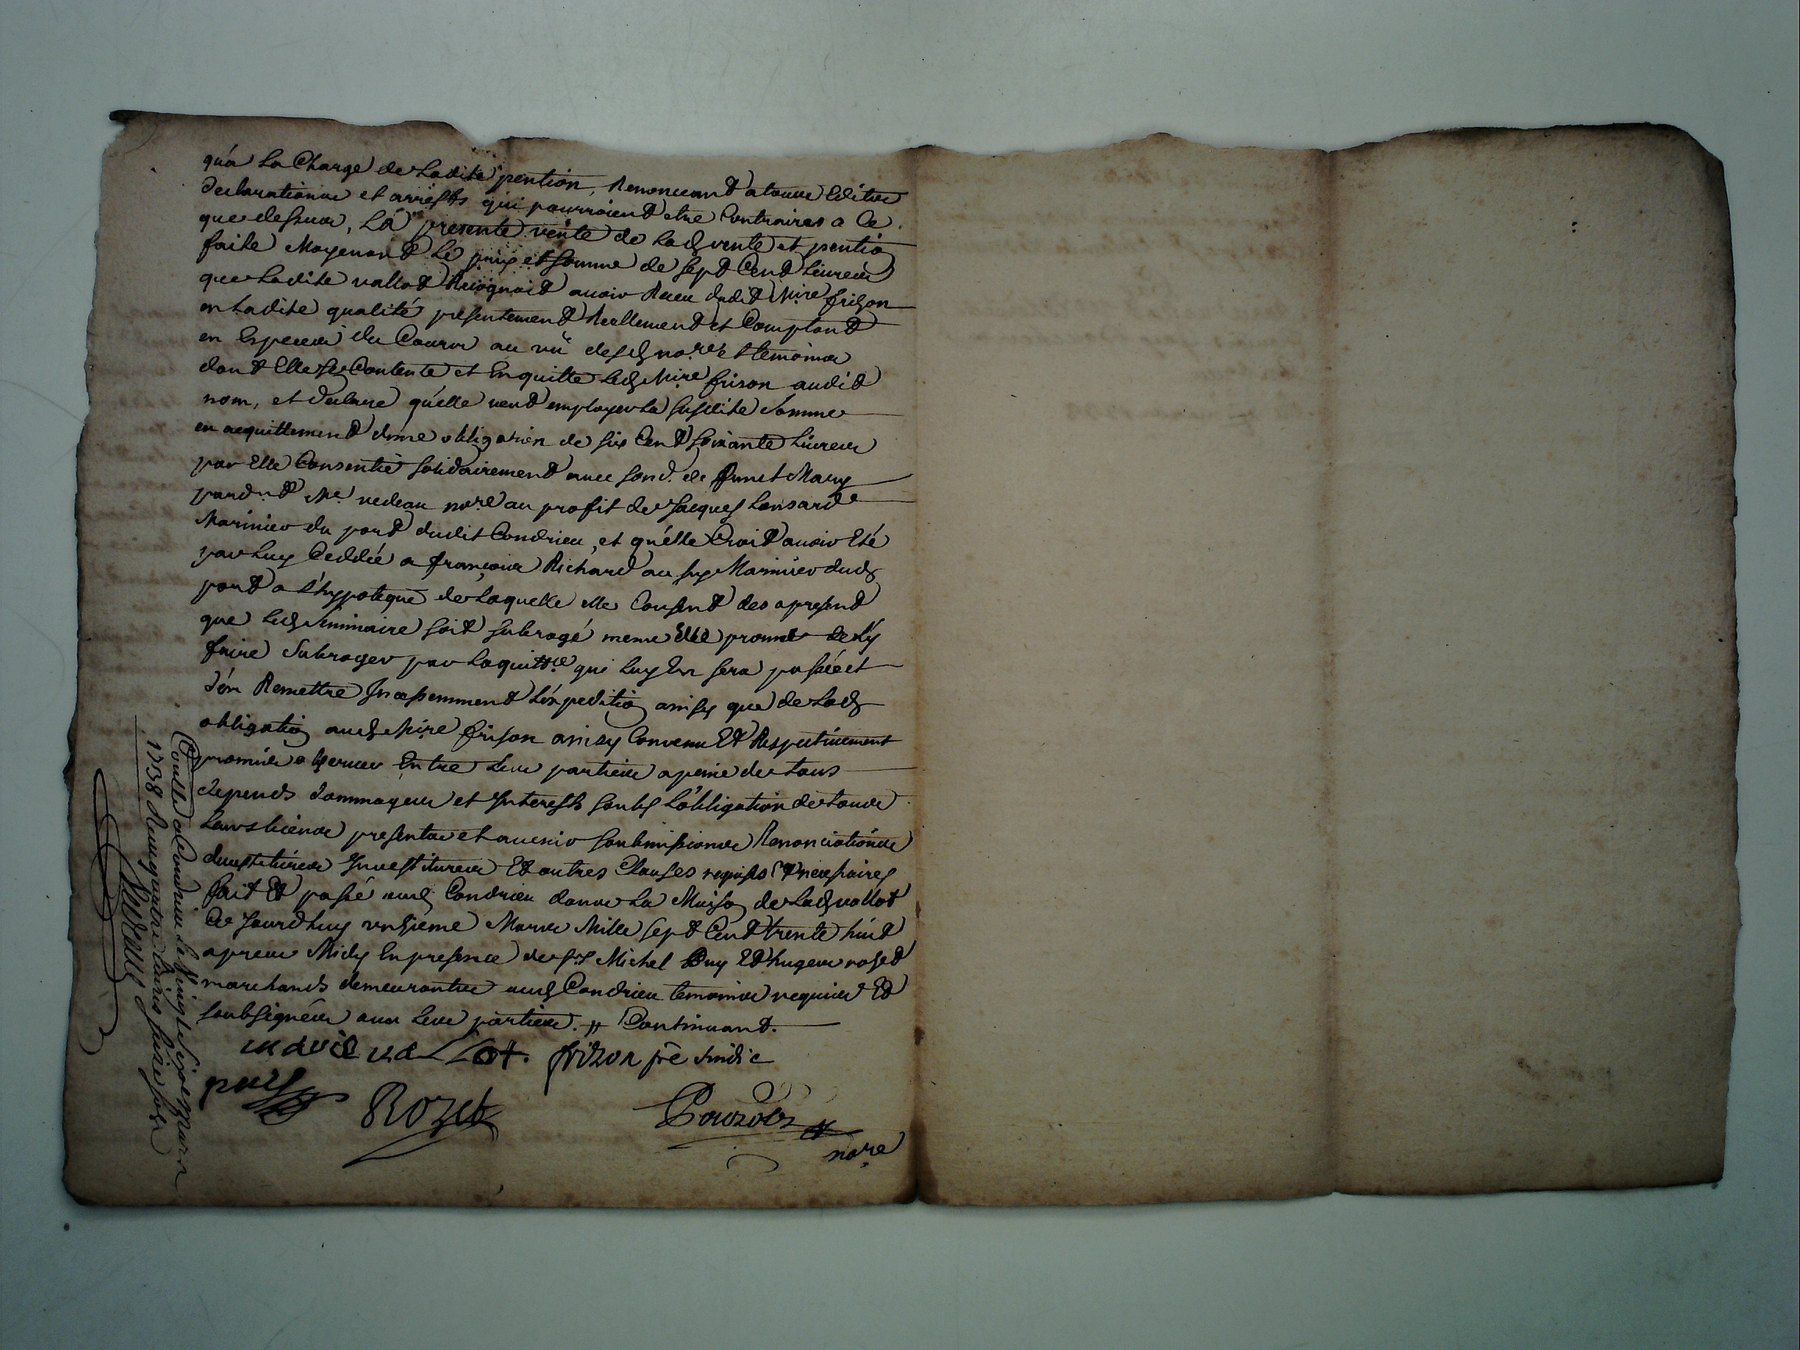 qu'a La Charge de Ladite pention, Renonceant a tous Edits
declarations et arrests qui pourroient etre Contraires a Ce
que dessus, La presente vente de Lad rente et pention
faite Moyenant Le prix et somme de sept Cent Livres
que Ladite vallot Recognoit avoir Receu dudit Mire frizon
en Ladite qualité presentement Reellement et Comptant
en Especes du Cours au vû desd nores et temoins
dont Elle se Contente et Enquitte Led Mire frison audit
nom, et declare qu'elle veut employer La susdite somme
en acquittement d'une obligation de six Cent soixante Livres
par Elle Consentie solidairement avec de funct Mary
pardnt Me nedeau nore au profit de Jacques Lansard
Marinier du port dudit Condrieu, et qu'elle Croit avoir Eté
par Luy Ceddée a françois Richard aussy Marinier dud
port a L'hypoteque de Laquelle elle Consent des apresent
que Led seminaire soit subrogé meme Elle promet de L'y
faire subroger par La quittce qui Luy En sera passée et
d'en Remettre Incessemment L'expedition ainsy que de Lad
obligation aud Mire frison ainsy Convenu Et Respectivement
promis observer Entre Les parties a peine de tous
depends dommages et Interests soubs L'obligation de tous
Leurs biens presents et avenir soubmissions Renonciations
devestitures Investitures Et autres Clauses requises Et necessaires
fait Et passé aud Condrieu dans La Maison de Lad vallot
Ce jourdhuy unzieme Mars Mille sept Cent trente huit
apres Midy En presence de srs Michel Puy Et hugues rozet
marchands demeurants aud Condrieu temoins requis Et
soubsignés avec Les parties. Continuant.
frizon pre sindic
puy
Rozet
nore
Controllé a Condrieu Le vingt sixe Mars
1738 Receu quatre Livres seize sols